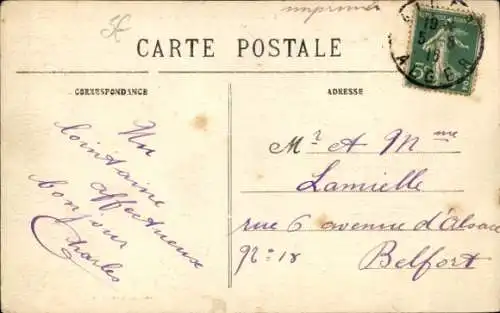 imprimer
CARTE POSTALE
CORRESPONDANCE
ADRESSE
Un
lointaine
affectueux
bonjour
Charles
Mr & Mme
Lamielle
rue 6 avenue d'Alsace
No 18
Belfort
ALGER